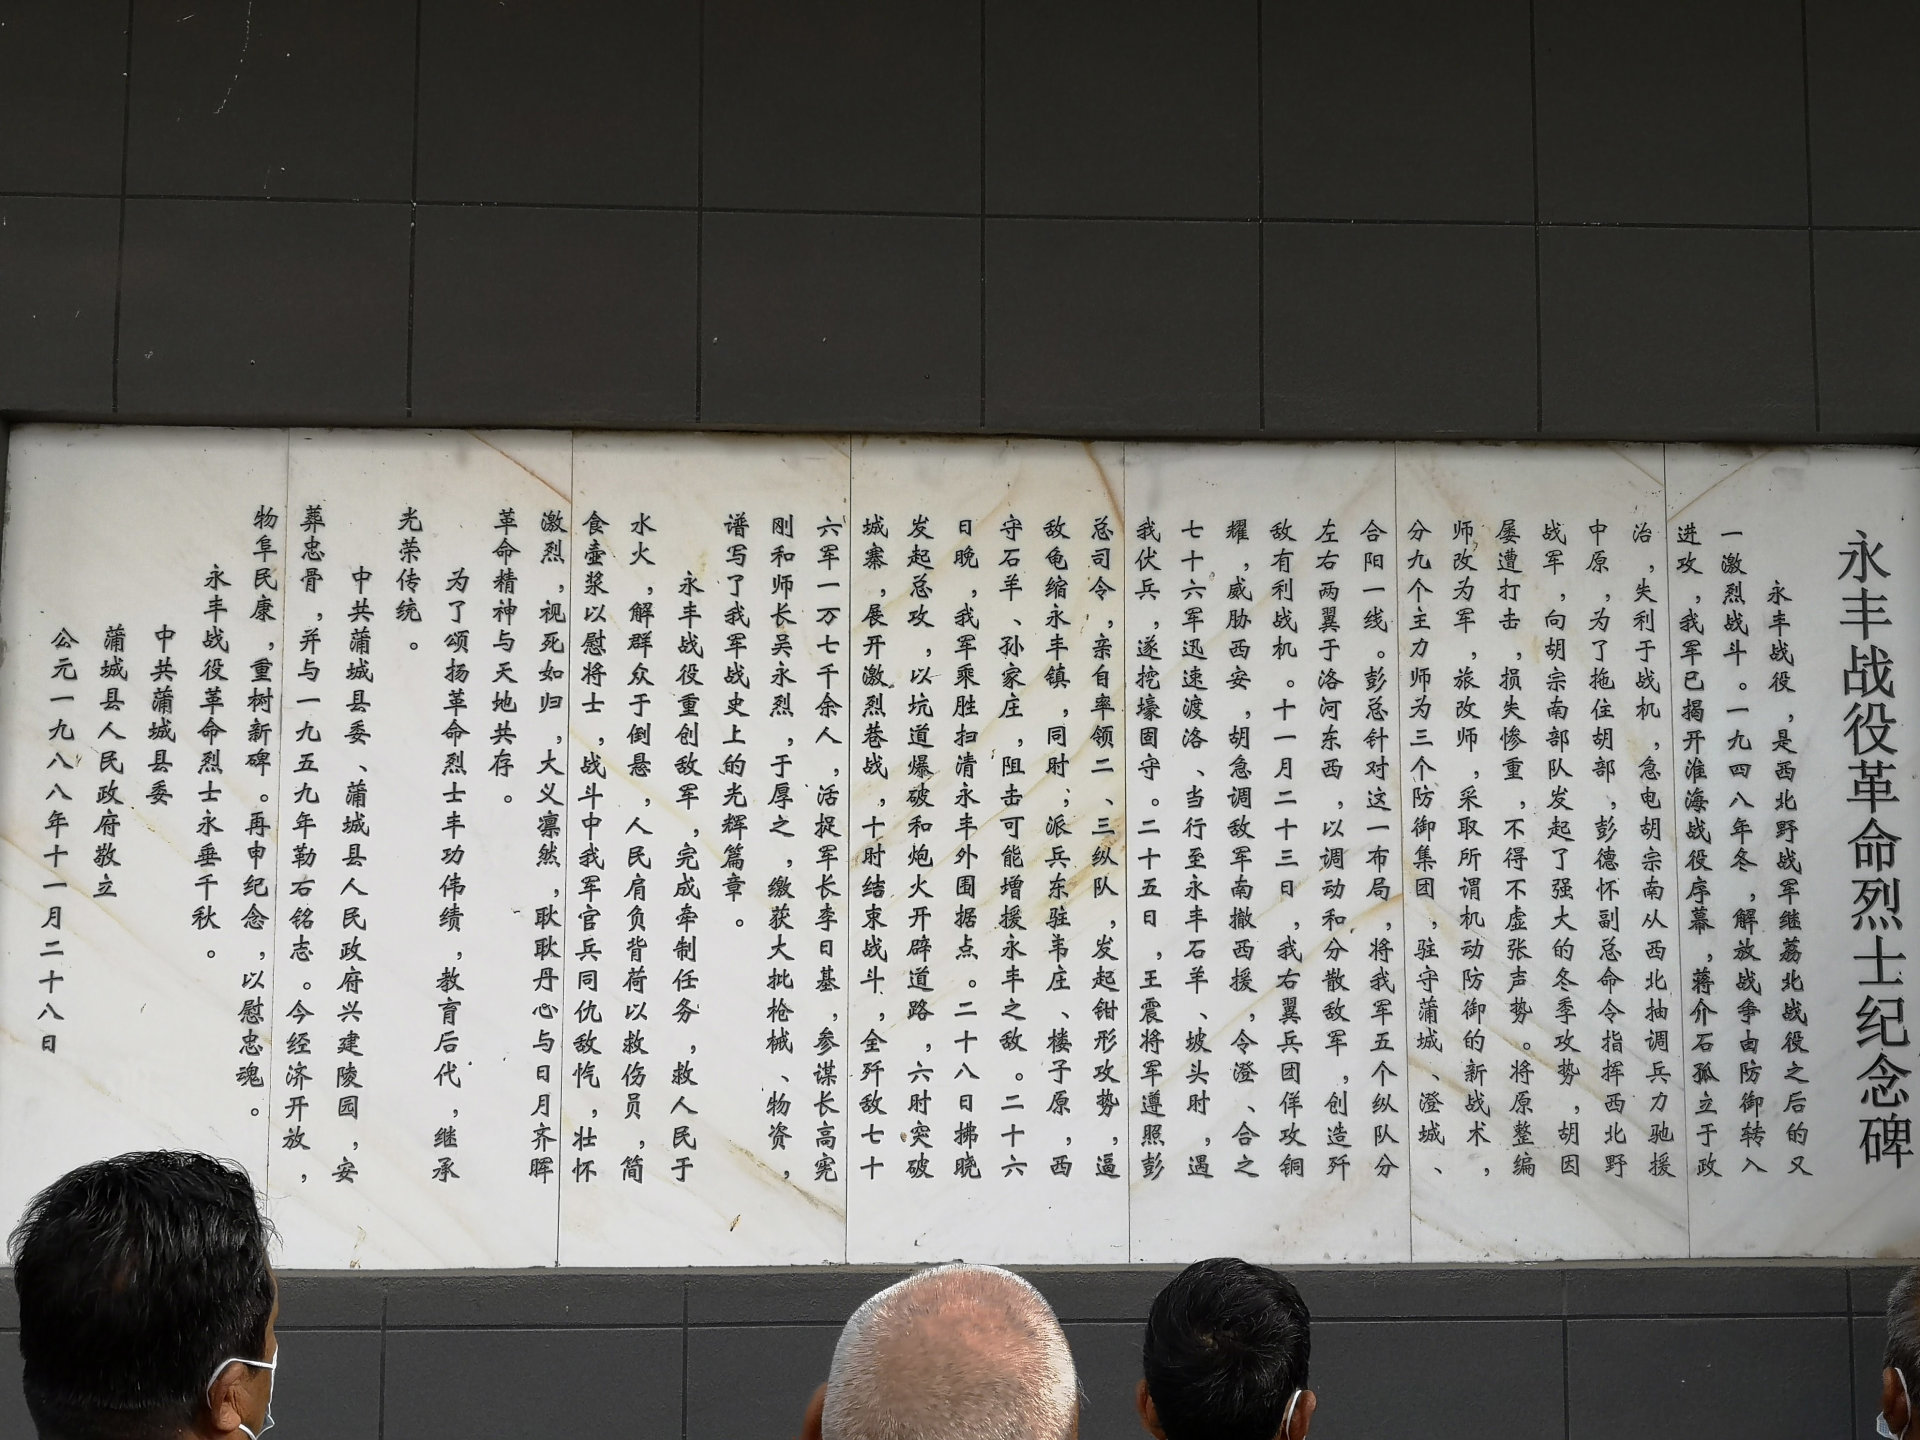 永丰战役革命烈士纪念碑
永丰战役，是西北野战军继荔北战役之后的又
一激烈战斗。一九四八年冬，解放战争由防御转入
进攻，我军已揭开淮海战役序幕，蒋介石孤立于政
治，失利于战机，急电胡宗南从西北抽调兵力驰援
中原，为了拖住胡部，彭德怀副总命令指挥西北野
战军，向胡宗南部队发起了强大的冬季攻势，胡因
屡遭打击，损失惨重，不得不虚张声势。将原整编
师改为军，旅改师，采取所谓机动防御的新战术，
分九个主力师为三个防御集团，驻守蒲城、澄城、
合阳一线。彭总针对这一布局，将我军五个纵队分
左右两翼于洛河东西，以调动和分散敌军，创造歼
敌有利战机。十一月二十三日，我右翼兵团佯攻铜
耀，威胁西安，胡急调敌军南撤西援，令澄、合之
七十六军迅速渡洛、当行至永丰石羊、坡头时，遇
我伏兵，遂挖壕固守。二十五日，王震将军遵照彭
总司令，亲自率领二、三纵队，发起钳形攻势，逼
敌龟缩永丰镇，同时；派兵东驻韦庄、楼子原，西
守石羊、孙家庄，阻击可能增援永丰之敌。二十六
日晚，我军乘胜扫清永丰外围据点。二十八日拂晓
发起总攻，以坑道爆破和炮火开辟道路，六时突破
城寨，展开激烈巷战，十时结束战斗，全歼敌七十
六军一万七千余人，活捉军长李日基，参谋长高宪
刚和师长吴永烈，于厚之，缴获大批枪械、物资，
谱写了我军战史上的光辉篇章。
永丰战役重创敌军，完成牵制任务，救人民于
水火，解群众于倒悬，人民肩负背荷以救伤员，简
食壶浆以慰将士，战斗中我军官兵同仇敌忾，壮怀
激烈，视死如归，大义凛然，耿耿丹心与日月齐晖
革命精神与天地共存。
为了颂扬革命烈士丰功伟绩，教育后代，继承
光荣传统。
中共蒲城县委、蒲城县人民政府兴建陵园，安
葬忠骨，并与一九五九年勒石铭志。今经济开放，
物阜民康，重树新碑。再申纪念，以慰忠魂。
永丰战役革命烈士永垂千秋。
中共蒲城县委
蒲城县人民政府敬立
公元一九八八年十一月二十八日